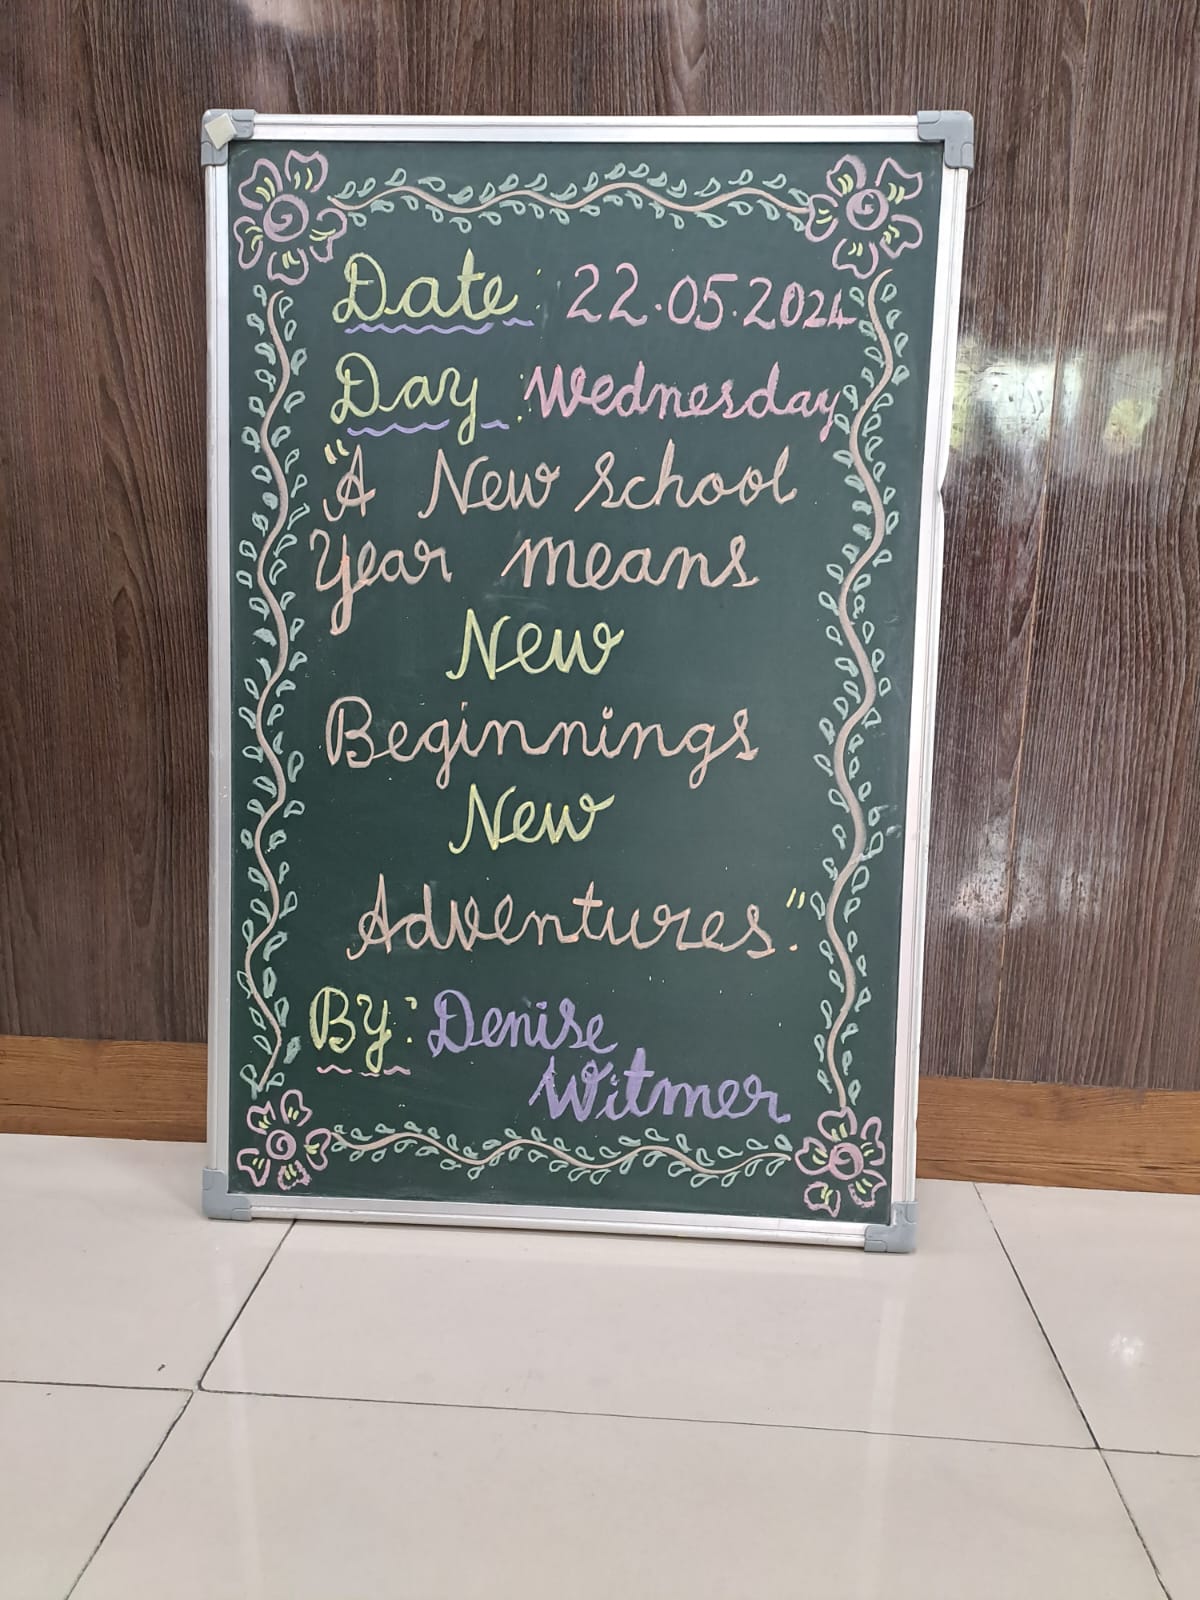 Date : 22.05.2024
Day : Wednesday
"A New School
Year means
New
Beginnings
New
Adventures."
By: Denise
Witmer